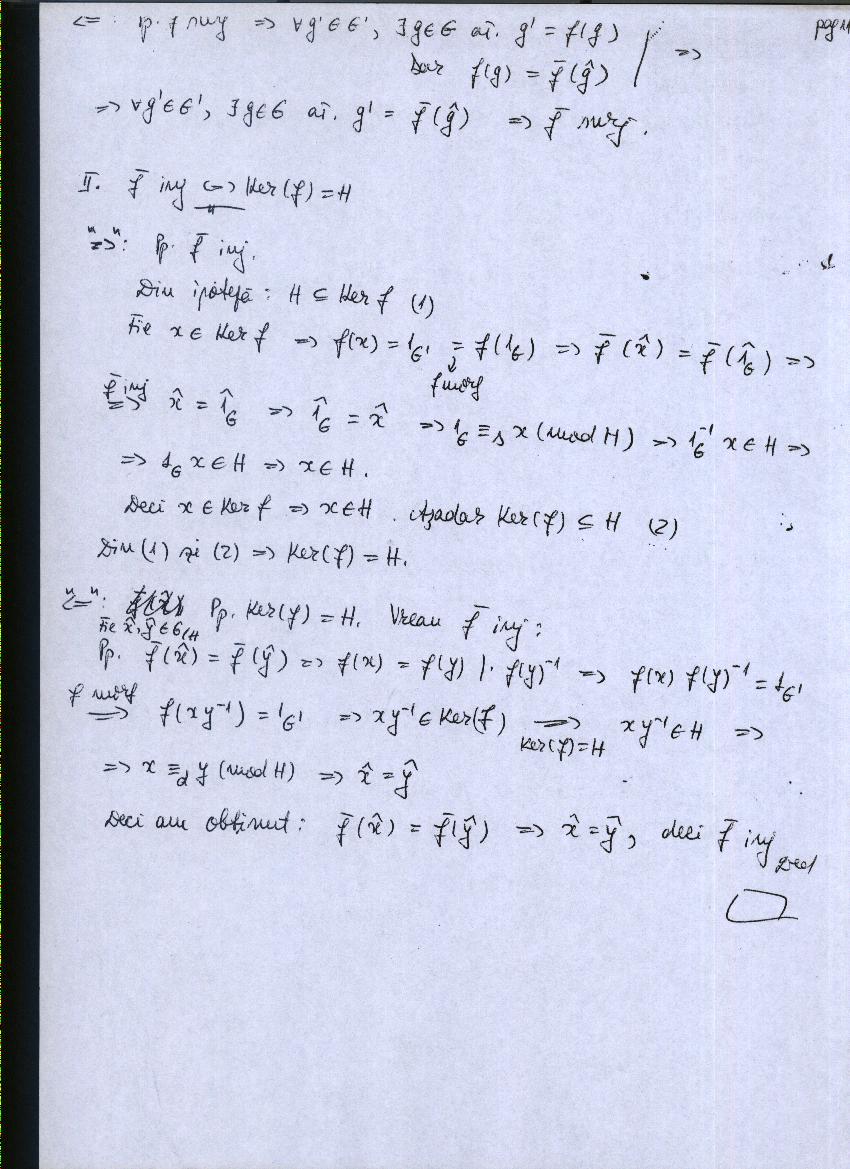 <=: p. f surj => ∀g'∈G', ∃g∈G aî. g' = f(g) | => pag
Dar f(g) = f̄(ĝ)
=> ∀g'∈G', ∃g∈G aî. g' = f̄(ĝ) => f̄ surj.
II. f̄ inj <=> Ker(f) = H
"=>": Pp. f̄ inj.
Din ipoteză: H ⊆ Ker f (1)
Fie x ∈ Ker f => f(x) = 1_G' = f(1_G) => f̄(x̂) = f̄(1̂_G) =>
f morf
f̄ inj => x̂ = 1̂_G => 1̂_G = x̂ => 1_G ≡_s x (mod H) => 1_G^-1 x ∈ H =>
=> 1_G x ∈ H => x ∈ H.
Deci x ∈ Ker f => x ∈ H. Așadar Ker(f) ⊆ H (2)
Din (1) și (2) => Ker(f) = H.
"<=": Pp. Ker(f) = H. Vreau f̄ inj:
Fie x̂, ŷ ∈ G/H
Pp. f̄(x̂) = f̄(ŷ) => f(x) = f(y) |· f(y)^-1 => f(x) f(y)^-1 = 1_G'
f morf => f(xy^-1) = 1_G' => xy^-1 ∈ Ker(f) => xy^-1 ∈ H =>
Ker(f)=H
=> x ≡_d y (mod H) => x̂ = ŷ
Deci am obținut: f̄(x̂) = f̄(ŷ) => x̂ = ŷ, deci f̄ inj
qed